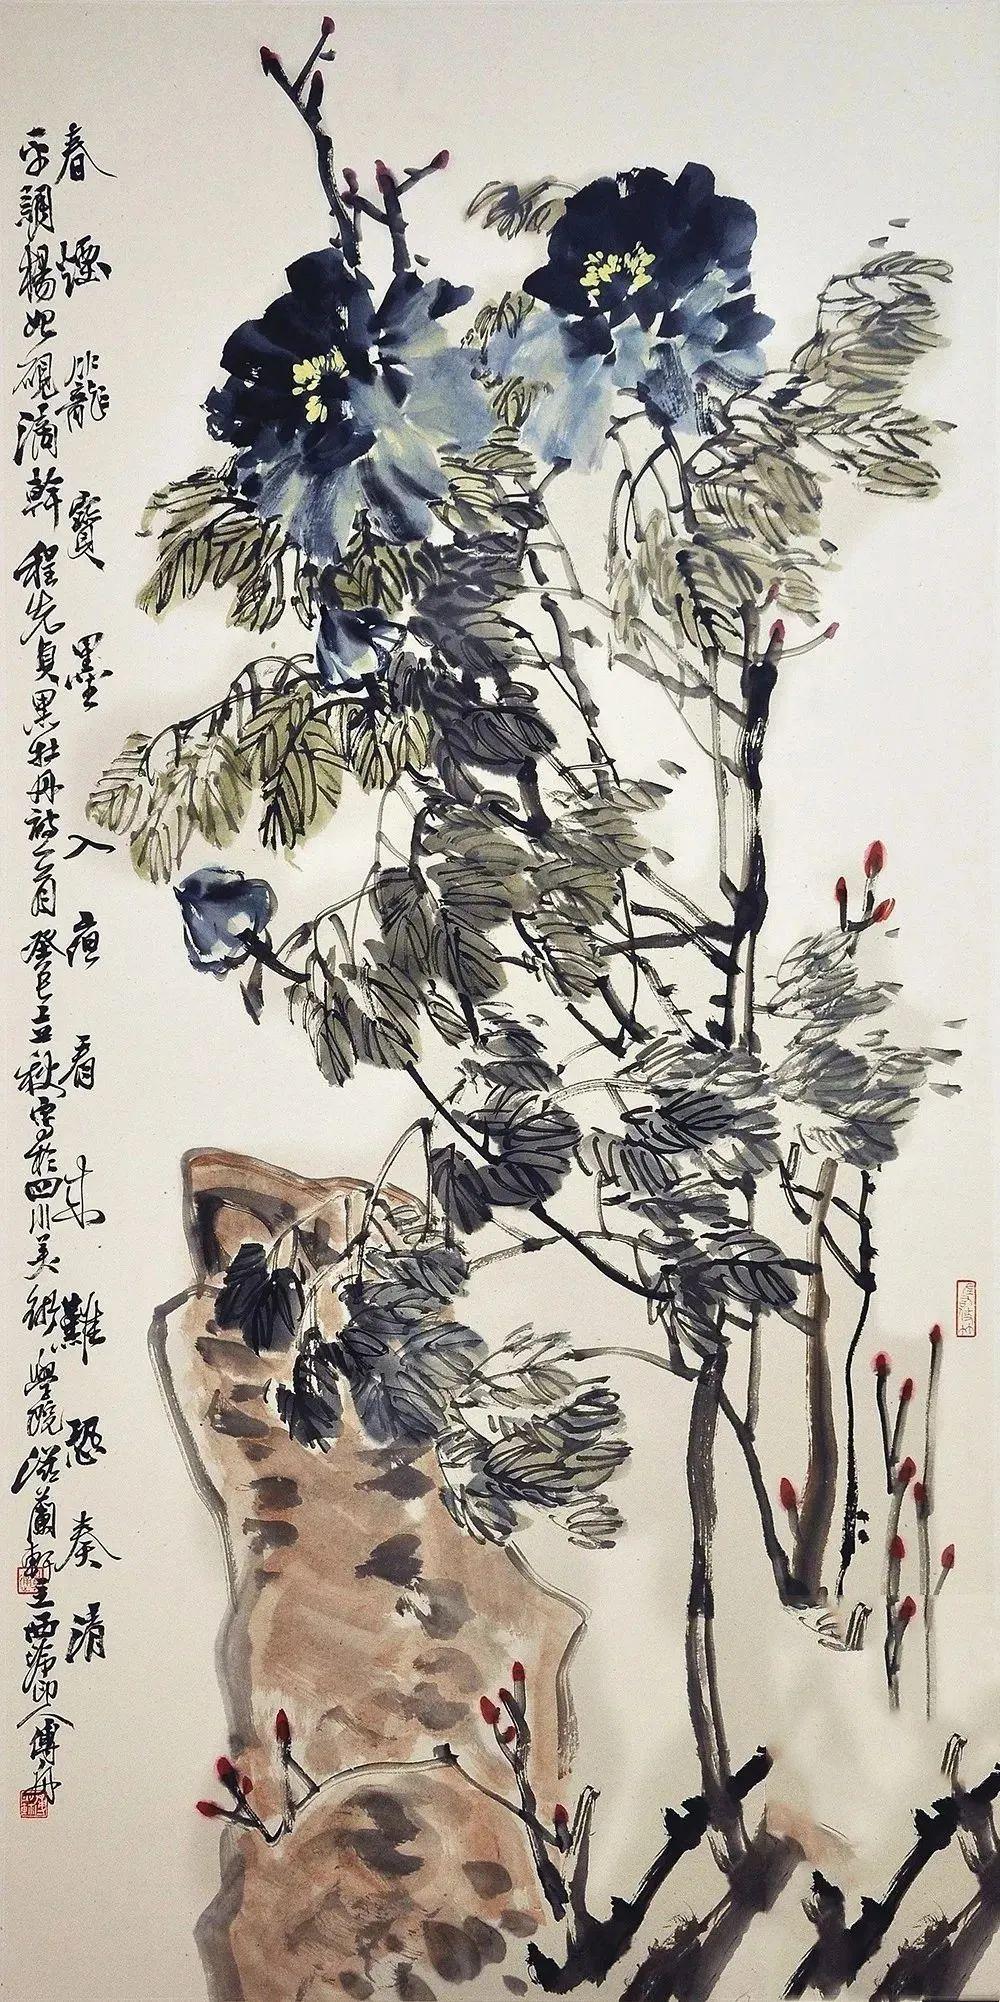 春煙籠寶墨入夜看來難恐奏清
平調楊妃硯滴幹程先貞黑牡丹詩一首癸巳立秋寫於四川美術學院滋蘭軒主西印人傅舟